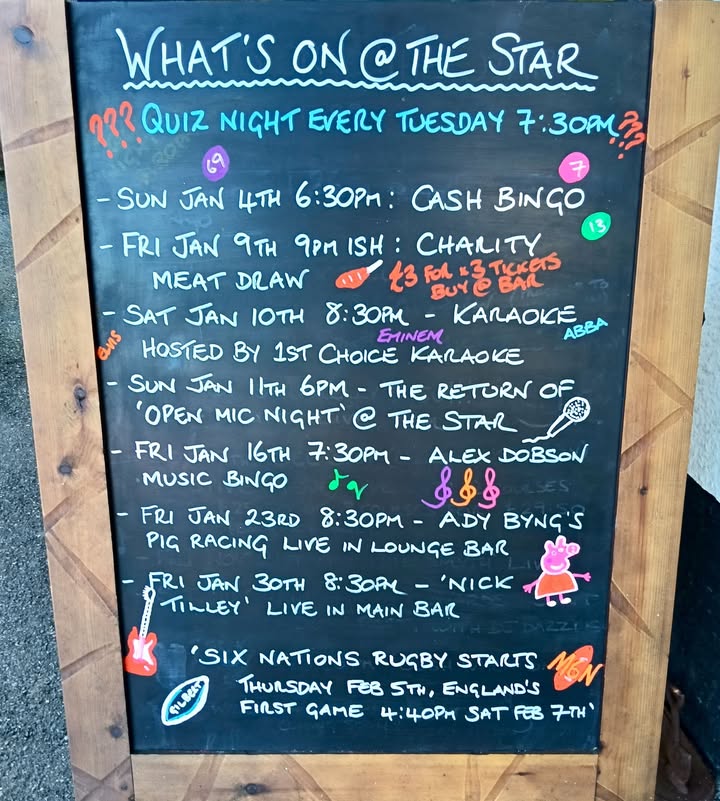 WHAT'S ON @ THE STAR
??? QUIZ NIGHT EVERY TUESDAY 7:30PM ???
69 7
- SUN JAN 4TH 6:30PM: CASH BINGO
13
- FRI JAN 9TH 9PM ISH: CHARITY
MEAT DRAW £3 FOR x3 TICKETS
BUY @ BAR
- SAT JAN 10TH 8:30PM - KARAOKE
ELVIS EMINEM ABBA
HOSTED BY 1ST CHOICE KARAOKE
- SUN JAN 11TH 6PM - THE RETURN OF
'OPEN MIC NIGHT' @ THE STAR
- FRI JAN 16TH 7:30PM - ALEX DOBSON
MUSIC BINGO
- FRI JAN 23RD 8:30PM - ADY BYNG'S
PIG RACING LIVE IN LOUNGE BAR
- FRI JAN 30TH 8:30PM - 'NICK
TILLEY' LIVE IN MAIN BAR
'SIX NATIONS RUGBY STARTS
THURSDAY FEB 5TH, ENGLAND'S
GILBERT FIRST GAME 4:40PM SAT FEB 7TH'